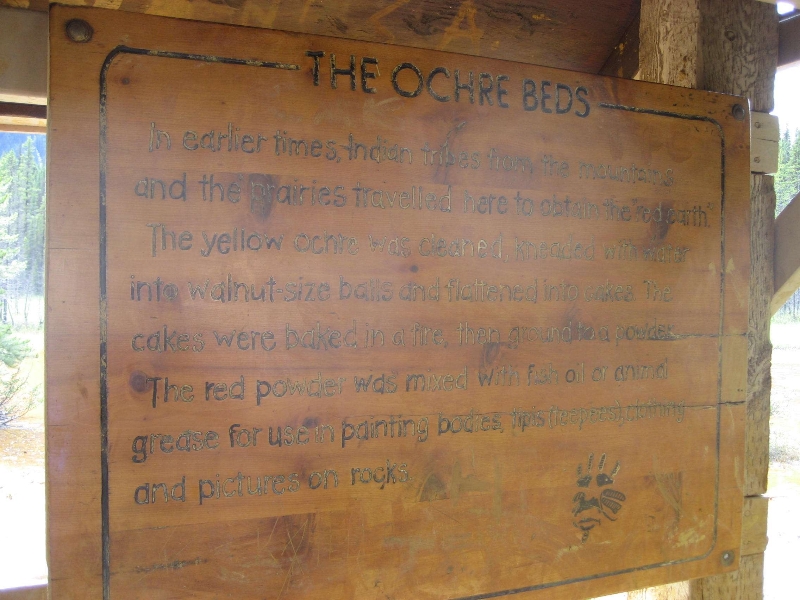 THE OCHRE BEDS
In earlier times, Indian tribes from the mountains
and the prairies travelled here to obtain the "red earth".
The yellow ochre was cleaned, kneaded with water
into walnut-size balls and flattened into cakes. The
cakes were baked in a fire, then ground to a powder.
The red powder was mixed with fish oil or animal
grease for use in painting bodies, tipis (teepees), clothing
and pictures on rocks.